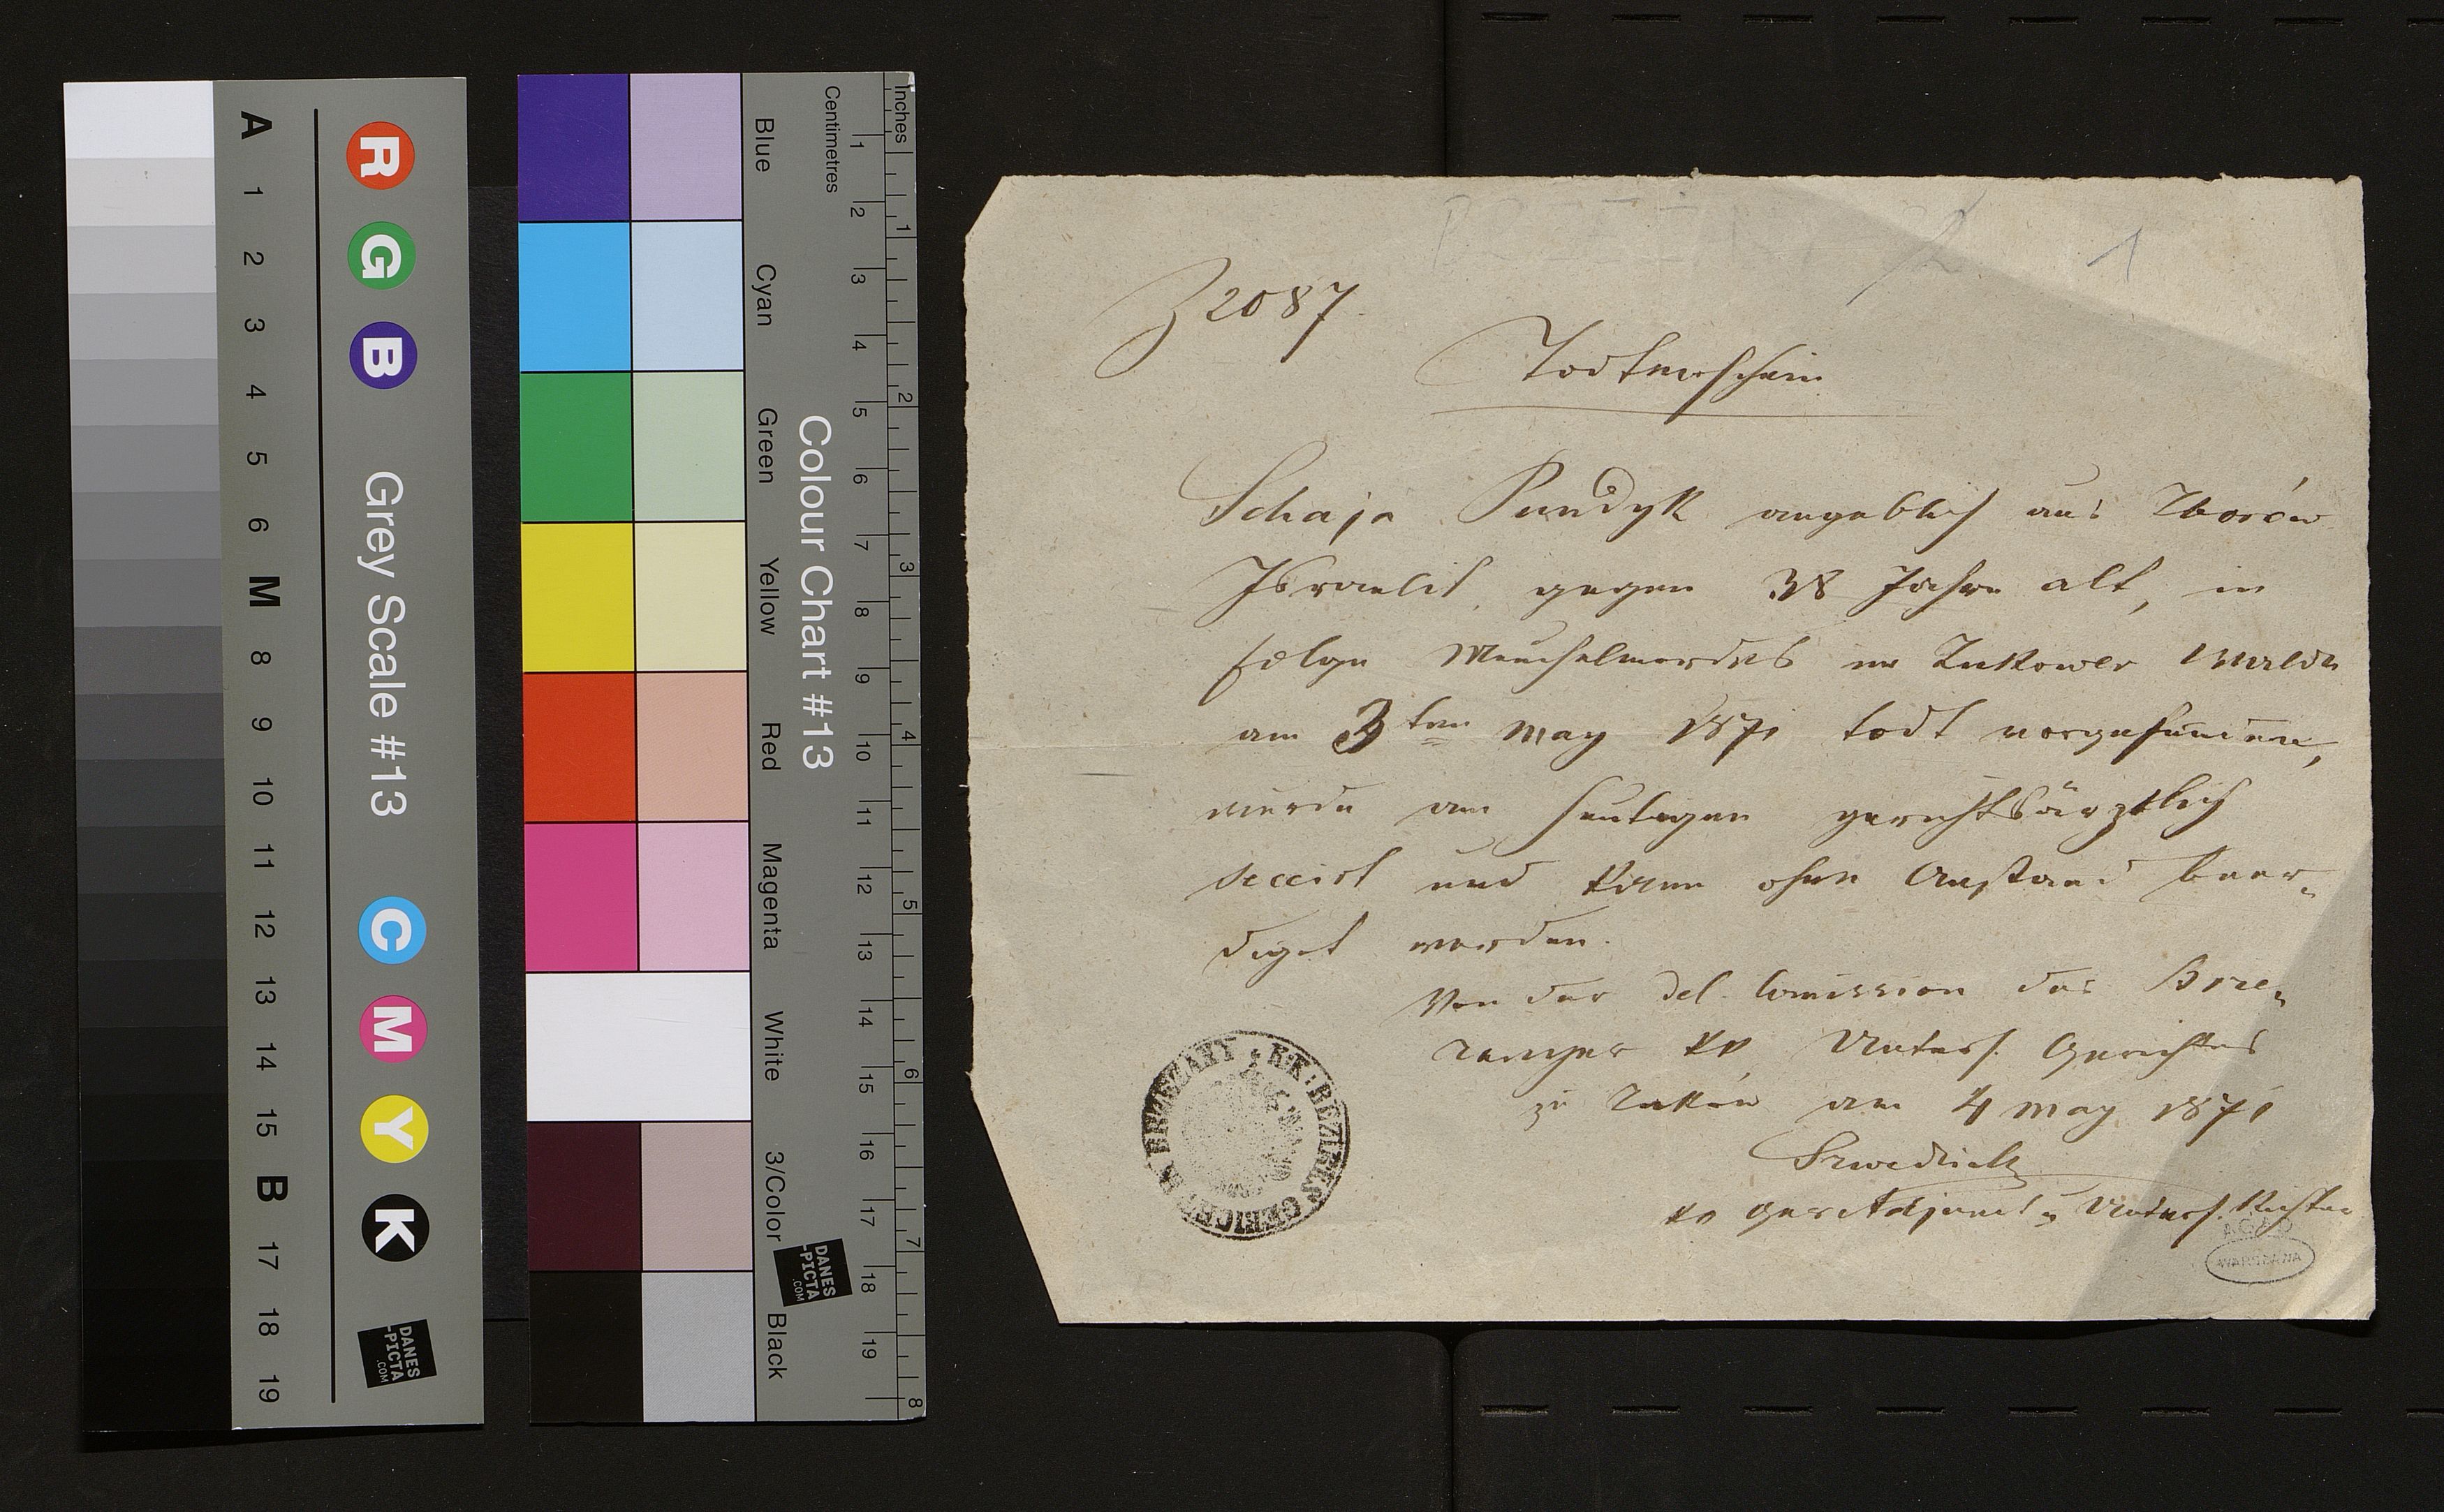 A 1 2 3 4 5 6 M 8 9 10 11 12 13 14 15 B 17 18 19
R G B
Grey Scale #13
C M Y K
DANES
-PICTA
.COM
Blue Cyan Green Yellow Red Magenta White 3/Color Black
Colour Chart #13
DANES
-PICTA
.COM
Centimetres 1 2 3 4 5 6 7 8 9 10 11 12 13 14 15 16 17 18 19
Inches 1 2 3 4 5 6 7 8
1
Z 2087
Todtenschein
Schaja Pundyk angeblich aus Zborów
Israelit, gegen 38 Jahre alt, in
folge Meuchelmordes im Zukower Walde
am 3ten May 1871 todt vorgefunden,
wurde am heutigen gerichtsärztlich
seccirt und kann ohne Anstand beer-
diget werden.
Von der del. Comission des Brze-
zanyer kk Unters. Gerichtes
zu Zuków am 4 May 1871
kk Ger Adjunct u Unters. Richter
K.K. BEZIRKS GERICHT IN BRZEZANY
AGAD
WARSZAWA